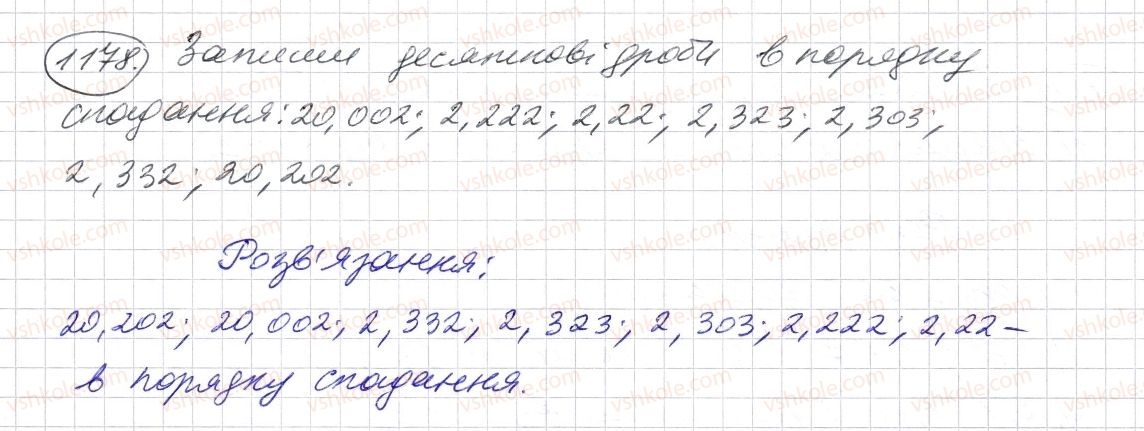 1178. Запиши десяткові дроби в порядку
спадання: 20,002; 2,222; 2,22; 2,323; 2,303;
2,332; 20,202.
Розв'язання:
20,202; 20,002; 2,332; 2,323; 2,303; 2,222; 2,22 –
в порядку спадання.